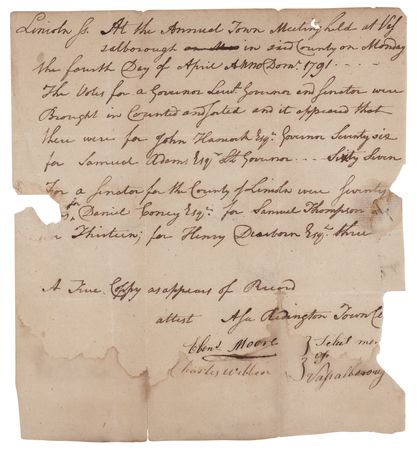 Lincoln Ss. At the Annual Town Meeting held at Vas
salborough in said County on Monday
the fourth Day of April Anno Domi. 1791
The Votes for a Governor Lieut Governor and Senator were
Brought in Counted and sorted and it appeared that
there were for John Hancock Esqr. Govenor Seventy six
for Samuel Adams Esq Lt Govenor Sixty Seven
For a Senator for the County of Lincoln were Seventy
for Daniel Coney Esqr. for Samuel Thompson
Thirteen; for Henry Dearborn Esqr. three
A True Coppy as appears of Record
attest Asa Redington Town Cl
Ebenr Moore } Select men
Charles Webber } of
Vassalboroug